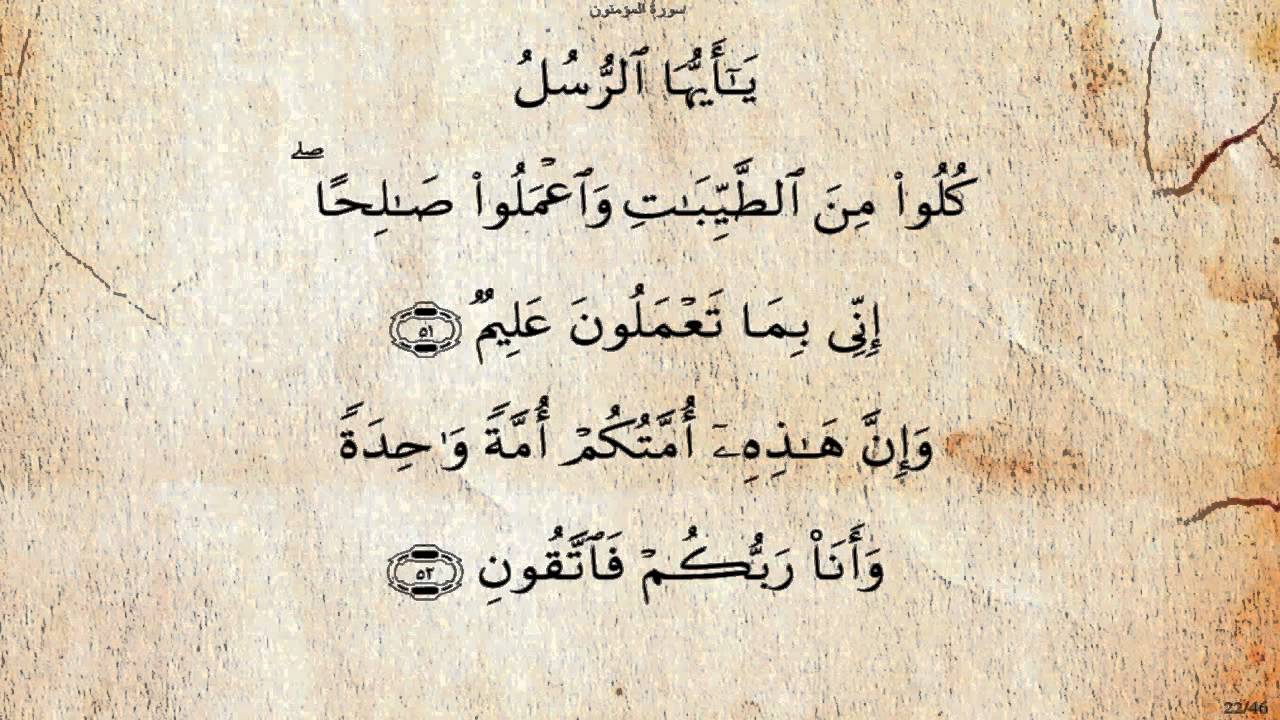 سورة المؤمنون
يَـٰٓأَيُّهَا ٱلرُّسُلُ
كُلُوا۟ مِنَ ٱلطَّيِّبَـٰتِ وَٱعْمَلُوا۟ صَـٰلِحًا ۖ
إِنِّى بِمَا تَعْمَلُونَ عَلِيمٌ ٥١
وَإِنَّ هَـٰذِهِۦٓ أُمَّتُكُمْ أُمَّةً وَٰحِدَةً
وَأَنَا۠ رَبُّكُمْ فَٱتَّقُونِ ٥٢
22/46